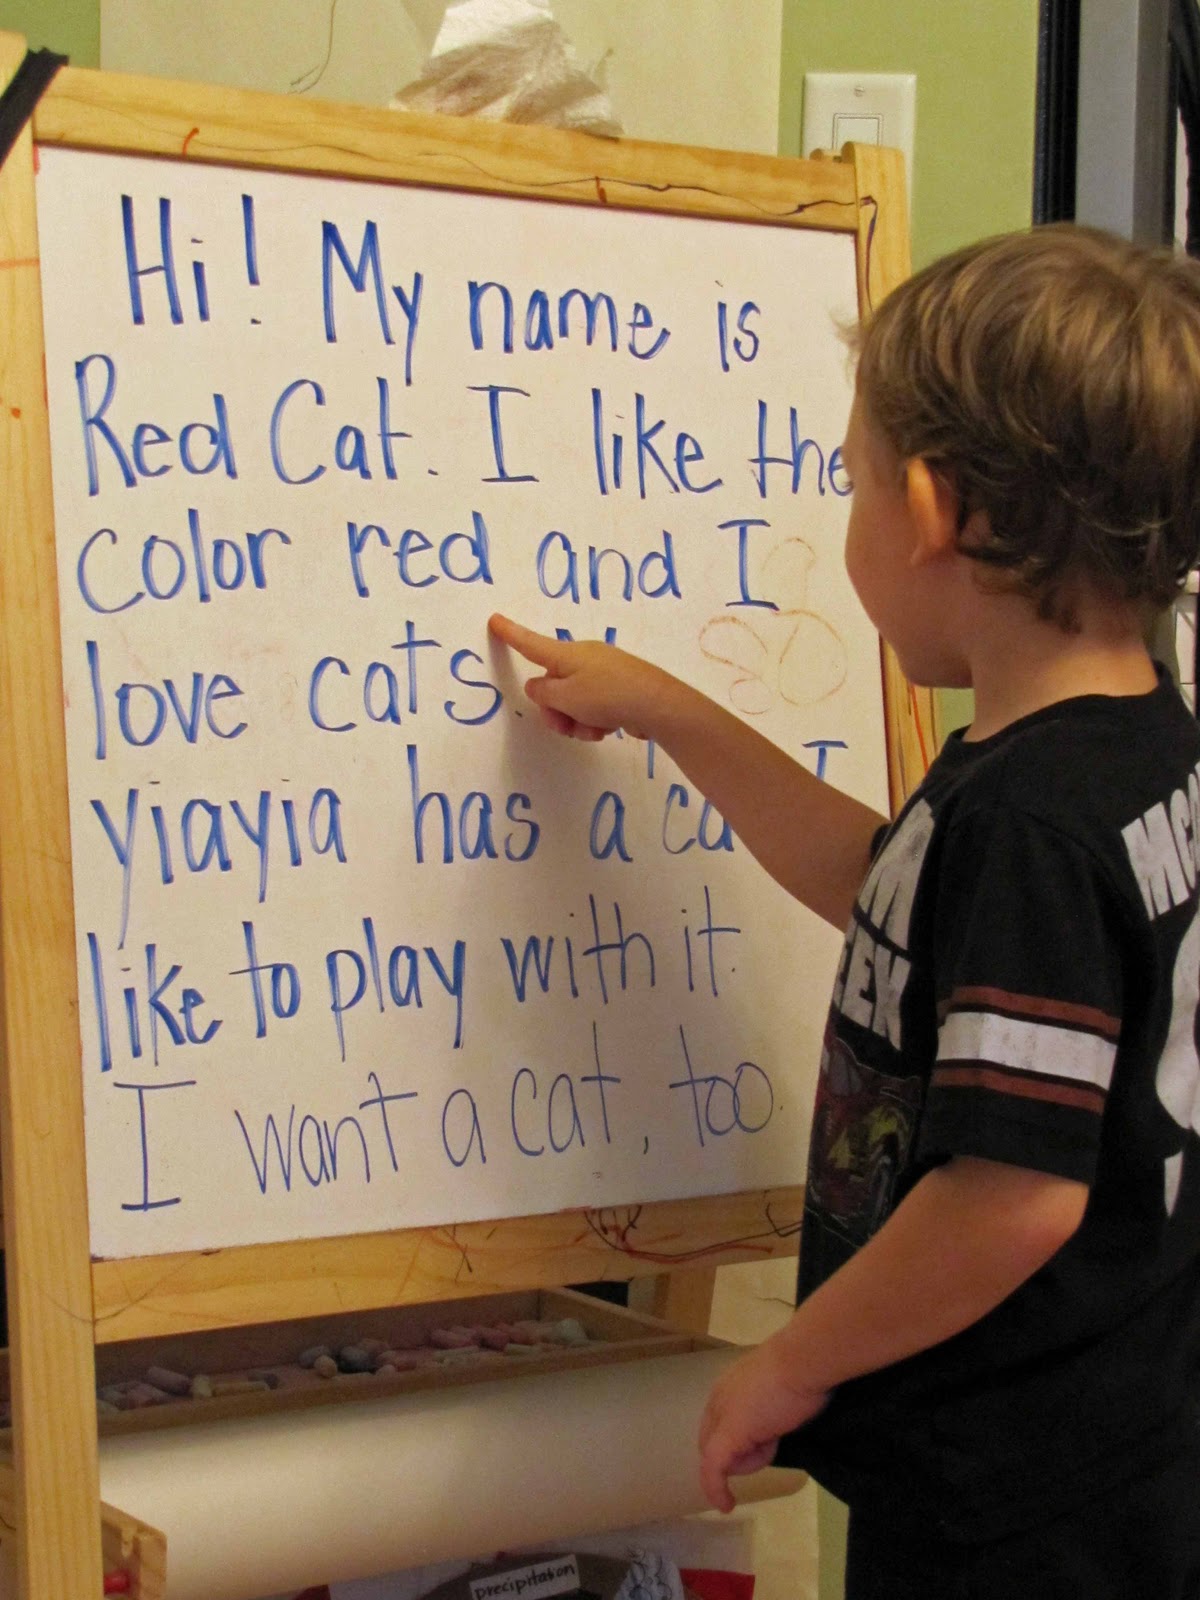 Hi! My name is
Red Cat. I like the
color red and I
love cats.
yiayia has a I
like to play with it.
I want a cat, too.
precipitation